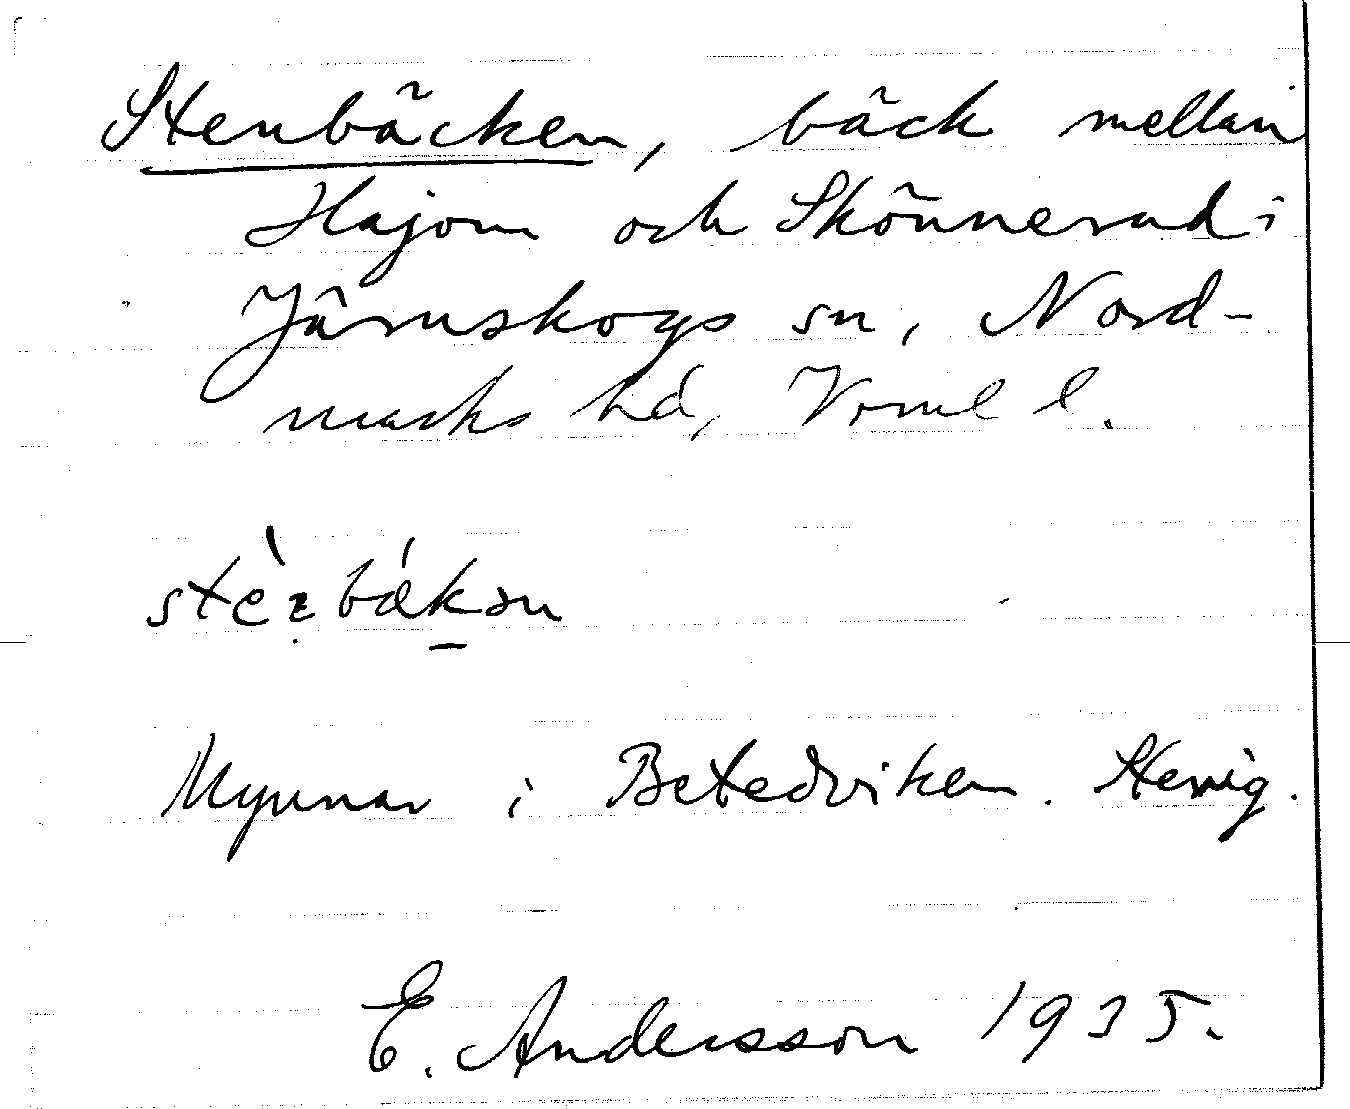 Stenbäcken, bäck mellan
Hajom och Skönnerud i
Järnskogs sn, Nord-
marks hd, Verml l.
Mynnar i Betedviken. Stenig.
E. Andersson 1935.